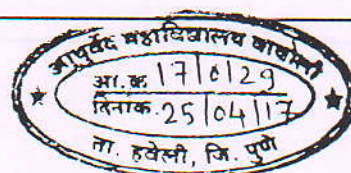 आयुर्वेद महाविद्यालय वाघोली
आ.क्र. 17/0/29
दिनांक. 25/04/17
ता. हवेली, जि. पुणे